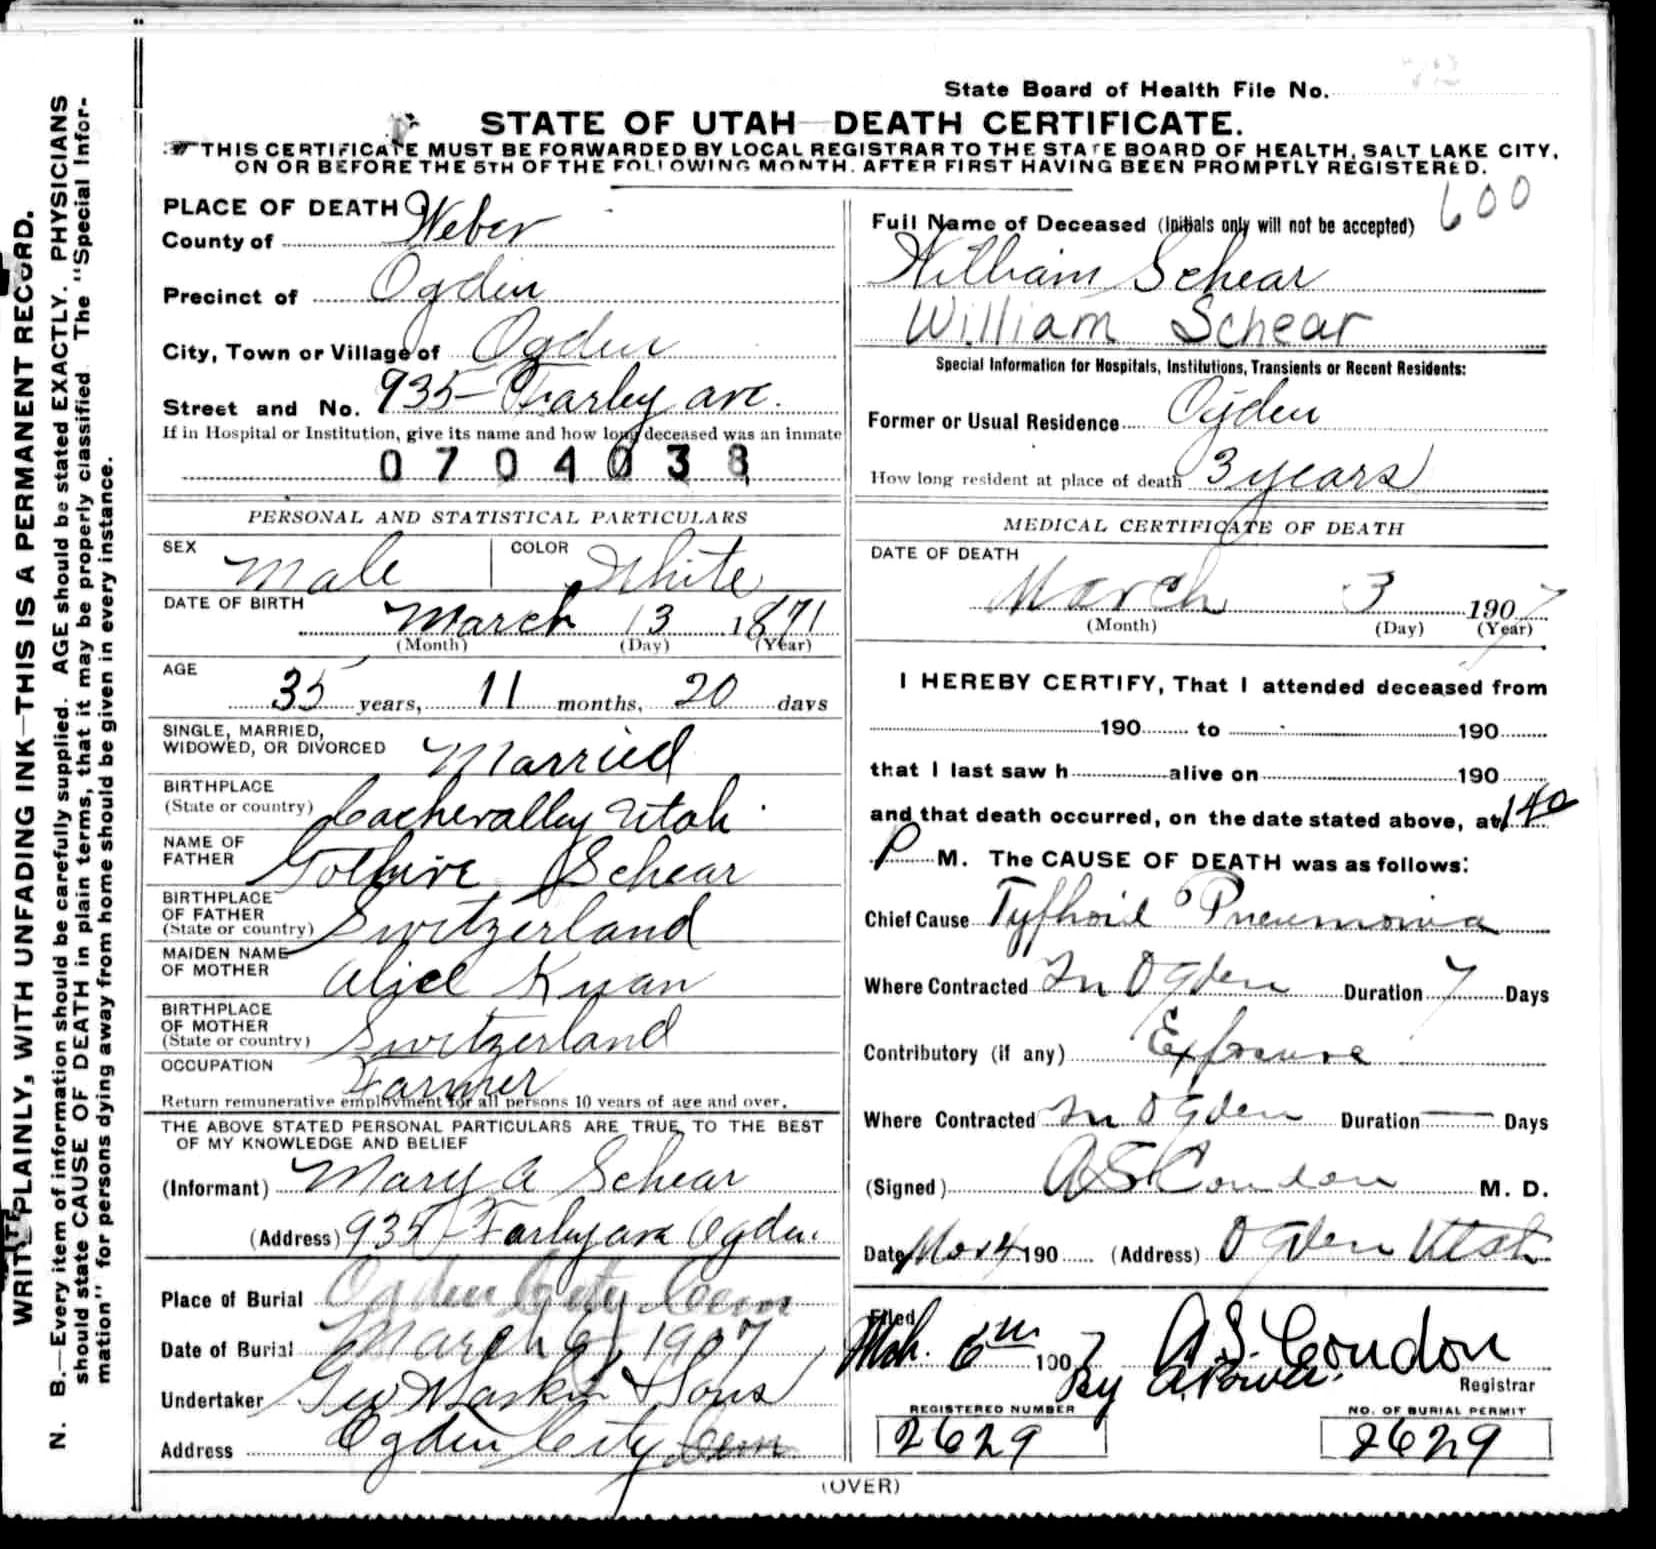 State Board of Health File No.
STATE OF UTAH—DEATH CERTIFICATE.
THIS CERTIFICATE MUST BE FORWARDED BY LOCAL REGISTRAR TO THE STATE BOARD OF HEALTH, SALT LAKE CITY,
ON OR BEFORE THE 5TH OF THE FOLLOWING MONTH. AFTER FIRST HAVING BEEN PROMPTLY REGISTERED.
WRITE PLAINLY, WITH UNFADING INK—THIS IS A PERMANENT RECORD.
N. B.—Every item of information should be carefully supplied. AGE should be stated EXACTLY. PHYSICIANS
should state CAUSE OF DEATH in plain terms, that it may be properly classified. The "Special Infor-
mation" for persons dying away from home should be given in every instance.
PLACE OF DEATH
County of Weber
Precinct of Ogden
City, Town or Village of Ogden
Street and No. 935 Farley ave.
If in Hospital or Institution, give its name and how long deceased was an inmate
0704038
PERSONAL AND STATISTICAL PARTICULARS
SEX Male COLOR White
DATE OF BIRTH
March 13 1871
(Month) (Day) (Year)
AGE
35 years, 11 months, 20 days
SINGLE, MARRIED,
WIDOWED, OR DIVORCED Married
BIRTHPLACE
(State or country) Cachevalley Utah
NAME OF
FATHER Schear
BIRTHPLACE
OF FATHER
(State or country) Switzerland
MAIDEN NAME
OF MOTHER Alice
BIRTHPLACE
OF MOTHER
(State or country) Switzerland
OCCUPATION
Farmer
Return remunerative employment for all persons 10 years of age and over.
THE ABOVE STATED PERSONAL PARTICULARS ARE TRUE TO THE BEST
OF MY KNOWLEDGE AND BELIEF
(Informant) Mary A Schear
(Address) 935 Farley ave Ogden.
Place of Burial Ogden City Cem
Date of Burial March 6, 1907
Undertaker Geo & Sons
Address Ogden City Cem
600
Full Name of Deceased (Initials only will not be accepted)
William Schear
William Schear
Special Information for Hospitals, Institutions, Transients or Recent Residents:
Former or Usual Residence Ogden
How long resident at place of death 3 years
MEDICAL CERTIFICATE OF DEATH
DATE OF DEATH
March 3 1907
(Month) (Day) (Year)
I HEREBY CERTIFY, That I attended deceased from
190 to 190
that I last saw h alive on 190
and that death occurred, on the date stated above, at 140
P M. The CAUSE OF DEATH was as follows:
Chief Cause Typhoid Pneumonia
Where Contracted In Ogden Duration 7 Days
Contributory (if any) Exposure
Where Contracted In Ogden Duration — Days
(Signed) A S Condon M. D.
Date Mar 4 190 (Address) Ogden Utah
Filed
Mch. 6th 1907 A. S. Condon
By
Registrar
REGISTERED NUMBER
2629
NO. OF BURIAL PERMIT
2629
(OVER)